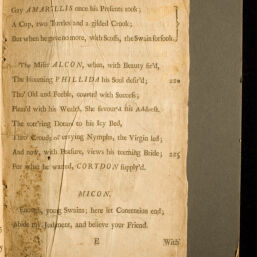 Gay AMARILLIS once his Presents took;
A Cup, two Turtles and a gilded Crook;
But when he gave no more, with Scoffs, the Swain forsook.
The Miser ALCON, when, with Beauty fir'd,
The blooming PHILLIDA his Soul desir'd; 220
Tho' Old and Feeble, courted with Success;
Pleas'd with his Wealth, She favour'd his Address.
The tott'ring Dotard to his Icy Bed,
Thro' Crouds of envying Nymphs, the Virgin led;
And now, with Pleasure, views his teeming Bride; 225
For what he wanted, CORYDON supply'd.
MICON.
Enough, young Swains; here let Contention end;
Abide my Judgment, and believe your Friend.
E With